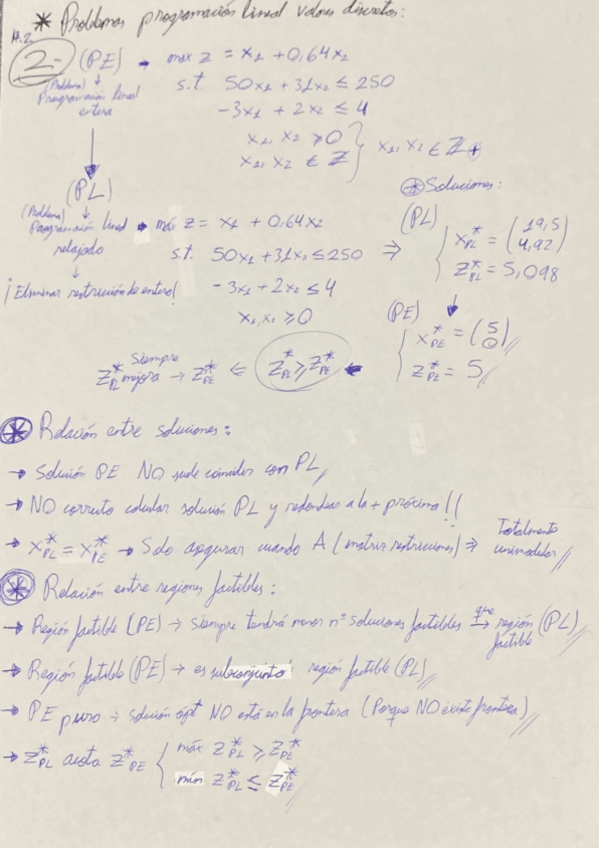 H.2 * Problemas programación lineal valores discretos:
2- (PE) → max z = x1 + 0,64x2
(Problema) ↓ s.t 50x1 + 31x2 ≤ 250
Programación lineal entera
-3x1 + 2x2 ≤ 4
x1, x2 ≥ 0
x1, x2 ∈ Z } x1, x2 ∈ Z+
(PL)
(Problema) ↓
Programación lineal relajado → máx z = x1 + 0,64x2
s.t. 50x1 + 31x2 ≤ 250 ⇒
↓
¡Eliminar restricción de entero!
-3x1 + 2x2 ≤ 4
x1, x2 ≥ 0
* Soluciones:
(PL)
{ x*PL = (19,5 4,92)
z*PL = 5,098
↓
(PE)
{ x*PE = (5 0)
z*PE = 5
Z*PL Siempre mejora → Z*PE ⇐ Z*PL ≥ Z*PE ←
* Relación entre soluciones:
→ Solución PE NO suele coincidir con PL
→ NO correcto calcular solución PL y redondear a la + próxima!!
→ x*PL = x*PE → Solo asegurar cuando A (matriz restricciones) ⇒ Totalmente unimodular
* Relación entre regiones factibles:
→ Región factible (PE) → Siempre tendrá menor nº soluciones factibles que → región factible (PL)
→ Región factible (PE) → es subconjunto región factible (PL)
→ PE puro → solución ópt NO está en la frontera (Porque NO existe frontera)
→ Z*PL acota Z*PE { máx Z*PL ≥ Z*PE
mín Z*PL ≤ Z*PE